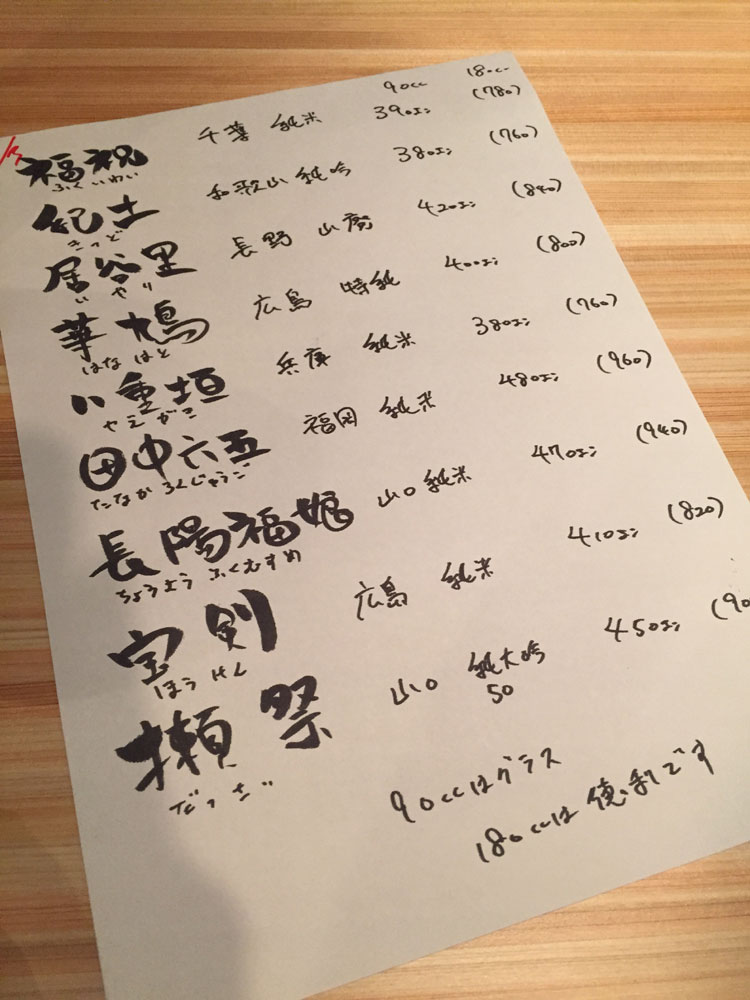 90cc 18cc
福祝 千葉 純米 390エン (780)
ふくいわい
紀土 和歌山 純吟 380エン (760)
きっど
居谷里 長野 山廃 420エン (840)
いやり
華鳩 広島 特純 400エン (800)
はなはと
八重垣 兵庫 純米 380エン (760)
やえがき
田中六五 福岡 純米 480エン (960)
たなかろくじゅうご
長陽福娘 山口 純米 470エン (940)
ちょうようふくむすめ
宝剣 広島 純米 410エン (820)
ほうけん
獺祭 山口 純大吟 450エン (90
だっさい 50
90ccはグラス
180ccは徳利です